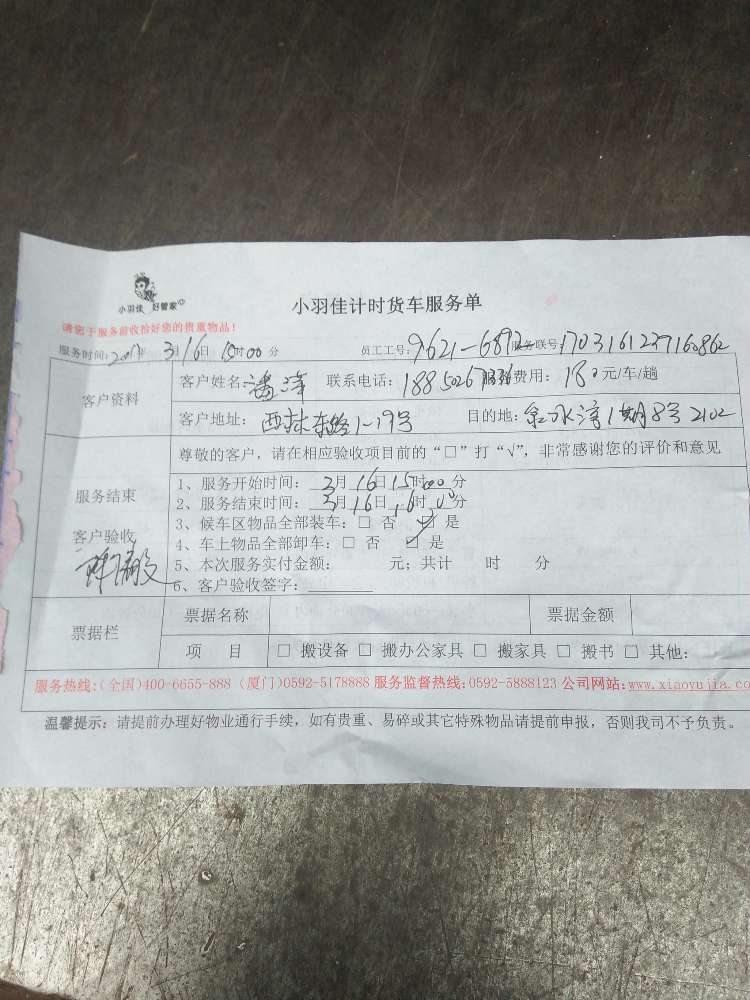 小羽佳 好管家
小羽佳计时货车服务单
请您于服务前收拾好您的贵重物品！
服务时间：2017年 3月16日 15时00分 员工工号：9621-6892 服务联号1703161237160862
客户资料
客户姓名：潘洋 联系电话：18850267 服务费用：180元/车/趟
客户地址：西林东路1-19号 目的地：1期8号2102
尊敬的客户，请在相应验收项目前的“□”打“√”，非常感谢您的评价和意见
服务结束
客户验收
1、服务开始时间：3月16日15时00分
2、服务结束时间：3月16日16时00分
3、候车区物品全部装车：□ 否 ☑ 是
4、车上物品全部卸车：□ 否 □ 是
5、本次服务实付金额： 元；共计 时 分
6、客户验收签字：
票据栏
票据名称 票据金额
项 目 □ 搬设备 □ 搬办公家具 □ 搬家具 □ 搬书 □ 其他：
服务热线：(全国)400-6655-888 (厦门)0592-5178888 服务监督热线：0592-5888123 公司网站：www.xiaoyujia.co
温馨提示：请提前办理好物业通行手续，如有贵重、易碎或其它特殊物品请提前申报，否则我司不予负责。